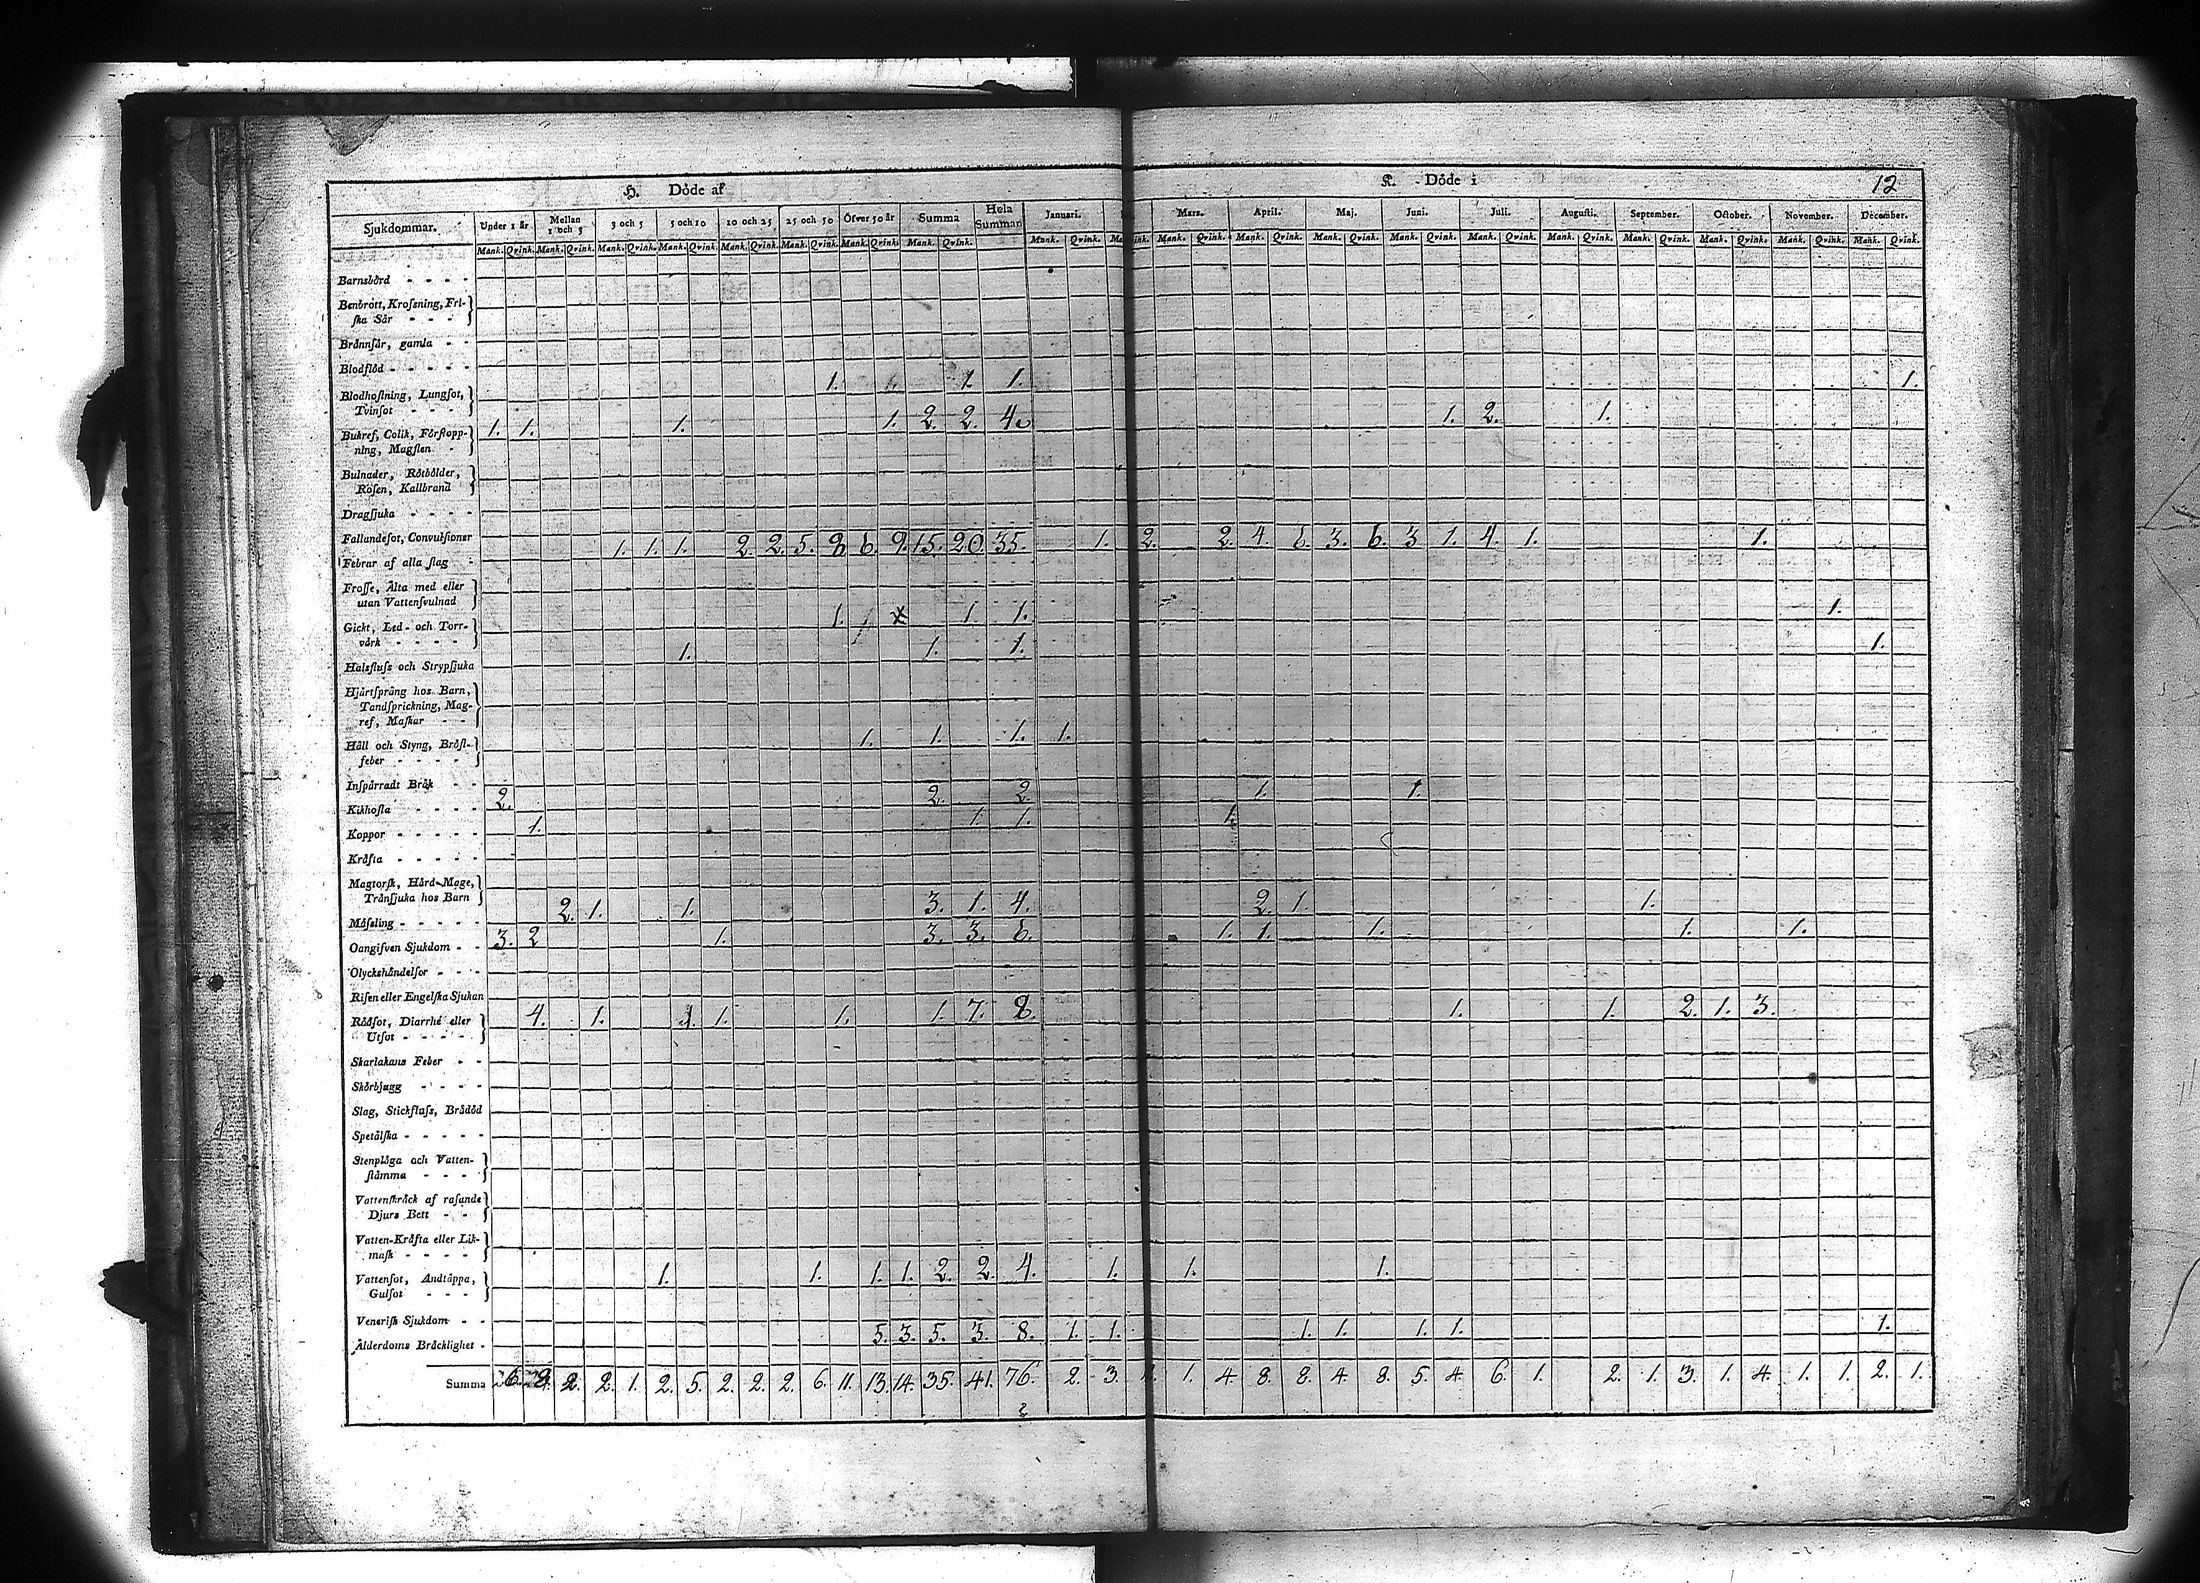 H. Döde af K. Döde i 12
Sjukdommar. Under 1 år Mellan 1 och 3 3 och 5 5 och 10 10 och 25 25 och 50 Öfver 50 år Summa Hela Summan Januari. Mars. April. Maj. Juni. Juli. Augusti. September. October. November. December.
Mank. Qvink. Mank. Qvink. Mank. Qvink. Mank. Qvink. Mank. Qvink. Mank. Qvink. Mank. Qvink. Mank. Qvink. Mank. Qvink. Mank. Qvink. Mank. Qvink. Mank. Qvink. Mank. Qvink. Mank. Qvink. Mank. Qvink. Mank. Qvink. Mank. Qvink. Mank. Qvink. Mank. Qvink.
Barnsbörd - - - -
Benbrott, Krosning, Fri-
ska Sår - - -
Brännsår, gamla - -
Blodflöd - - - - -
1. 1. 1. 1.
Blodhostning, Lungsot,
Tvinsot - - -
1. 1. 1. 1. 2. 2. 4. 1. 2. 1.
Bukref, Colik, Förstopp-
ning, Magsten -
Bulnader, Rötbölder,
Rosen, Kallbrand
Dragsjuka - - - -
Fallandesot, Convulsioner
1. 1. 1. 2. 2. 5. 8. 6. 9. 15. 20 35. 1. 2. 2. 4. 6. 3. 6. 3 1. 4. 1. 1.
Febrar af alla slag -
Frosse, Älta med eller
utan Vattensvulnad
1. 1 1. 1.
Gickt, Led- och Torr-
värk - - - -
1. 1. 1. 1.
Halsfluss och Strypsjuka
Hjärtsprång hos Barn,
Tandsprickning, Mag-
ref, Maskar - -
1. 1. 1. 1.
Håll och Styng, Bröst-
feber - - - -
Inspärradt Bråk - -
2. 2. 2. 1. 1.
Kikhosta - - - -
1. 1. 1. 1.
Koppor - - - - -
Kräfta - - - - -
Magtorsk, Hård-Mage,
Tränsjuka hos Barn
2. 1. 1. 3. 1. 4. 2. 1. 1.
Mässling - - - - -
3. 2 1. 3. 3. 6. 1. 1. 1. 1. 1.
Oangifven Sjukdom - -
Olyckshändelsor - - -
Risen eller Engelska Sjukan
4. 1. 1. 1. 1. 1. 7. 8. 1. 1. 2. 1. 3.
Rödsot, Diarrhé eller
Utsot - - - -
Skarlakans Feber - -
Skörbjugg - - - -
Slag, Stickfluss, Brådöd
Spetälska - - - - -
Stenplåga och Vatten-
stämma - - - -
Vattenskräck af rasande
Djurs Bett - -
Vatten-Kräfta eller Lik-
mask - - - -
1. 1. 1. 1. 2. 2. 4. 1. 1. 1.
Vattensot, Andtäppa,
Gulsot - - -
Venerisk Sjukdom - -
5. 3. 5. 3. 8. 1. 1. 1. 1. 1. 1. 1.
Ålderdoms Bräcklighet -
Summa 6. 8. 2. 2. 1. 2. 5. 2. 2. 2. 6. 11. 13. 14. 35. 41. 76. 2. 3. 1. 4. 8. 8. 4. 8. 5. 4. 6. 1. 2. 1. 3. 1. 4. 1. 1. 2. 1.